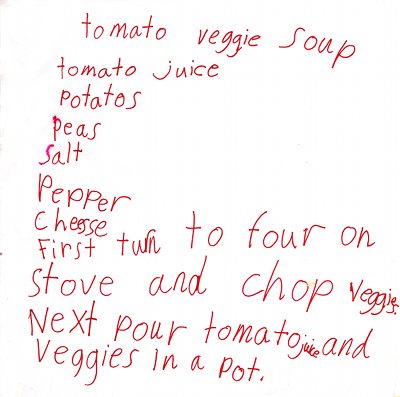 tomato veggie soup
tomato juice
potatos
peas
Salt
Pepper
Cheesse
First turn to four on
stove and chop veggies.
Next pour tomato juice and
Veggies in a pot.